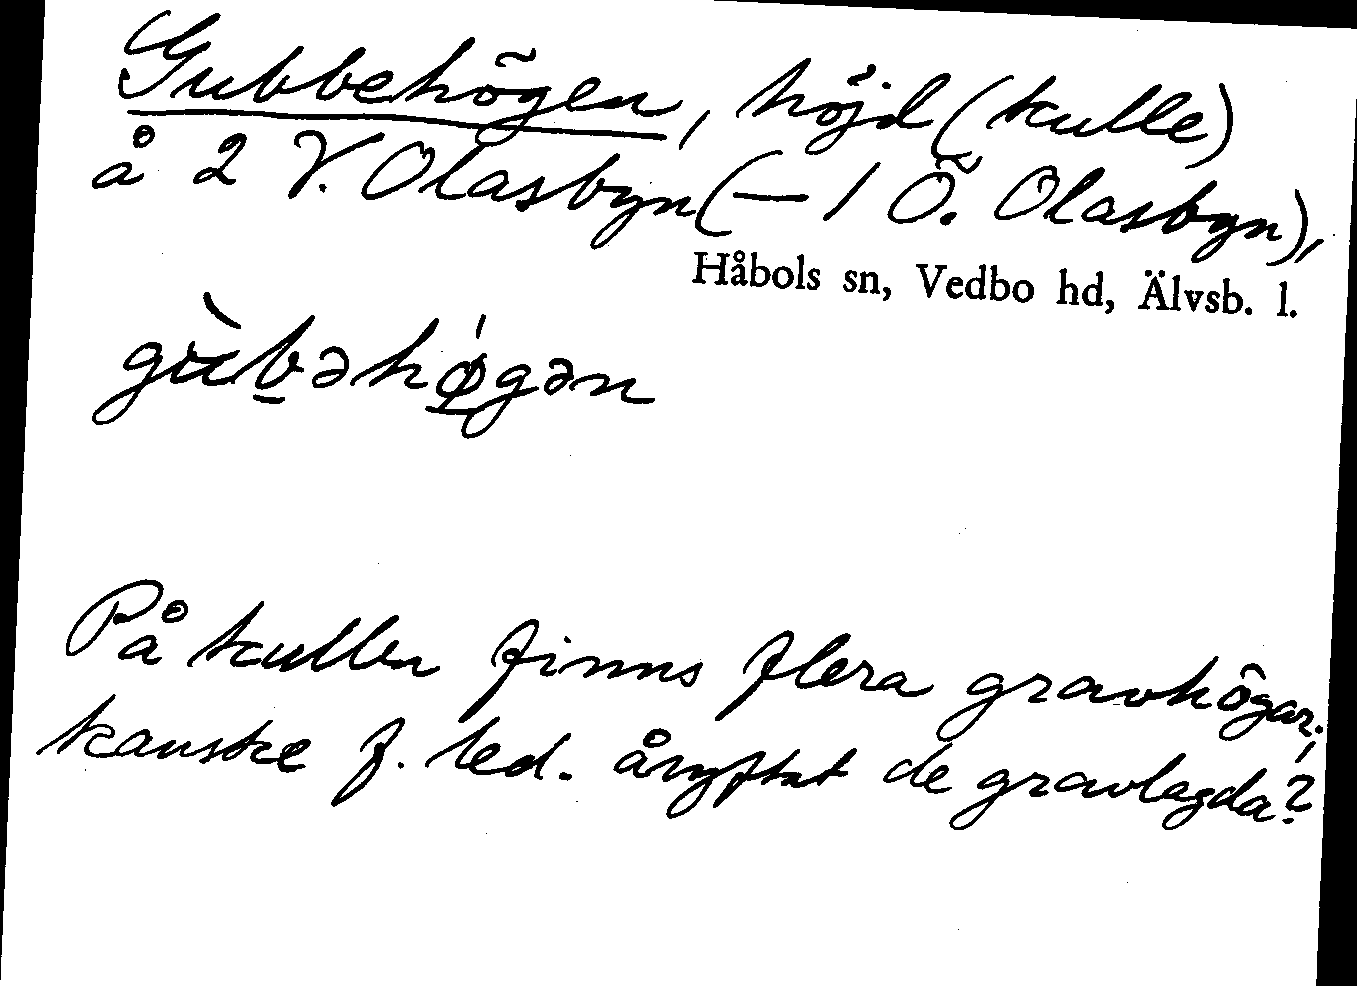 Gubbehögen, höjd (kulle)
å 2 V. Olasbyn (— 1 Ö. Olasbyn),
Håbols sn, Vedbo hd, Älvsb. l.
gùb̲əhǿ̲gən
På kullen finns flera gravhögar;
kanske f. led. åsyftat de gravlagda?